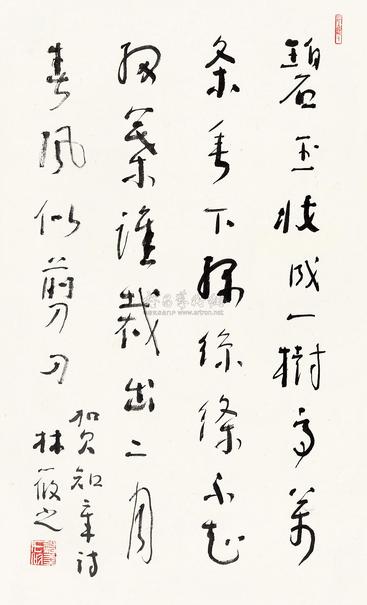 碧玉妝成一樹高萬
条垂下綠絲絛不知
細葉誰裁出二月
春風似剪刀
賀知章詩
林筱之